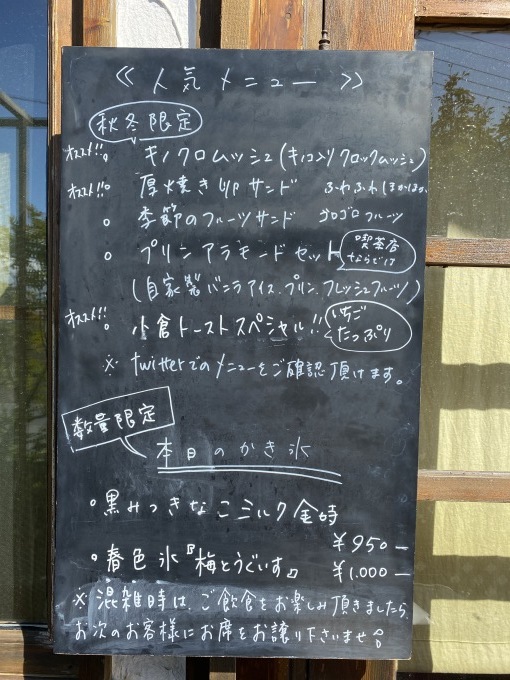 《人気メニュー》
秋冬限定
オススメ!!。キノクロムッシュ(キノコ入りクロックムッシュ)
オススメ!!。厚焼きUPサンド ふわふわ
。季節のフルーツサンド ゴロゴロフルーツ
。プリンアラモンドセット 喫茶店ならでは
(自家製バニラアイス.プリン.フレッシュフルーツ)
オススメ!!。小倉トーストスペシャル!! いちごたっぷり
※ twitterでのメニューをご確認頂けます。
数量限定
本日のかき氷
。黒みつきなこミルク金時 ¥950-
。春色氷『梅とうぐいす』 ¥1.000-
※混雑時は、ご飲食をお楽しみ頂きましたら、
お次のお客様にお席をお譲り下さいませ。